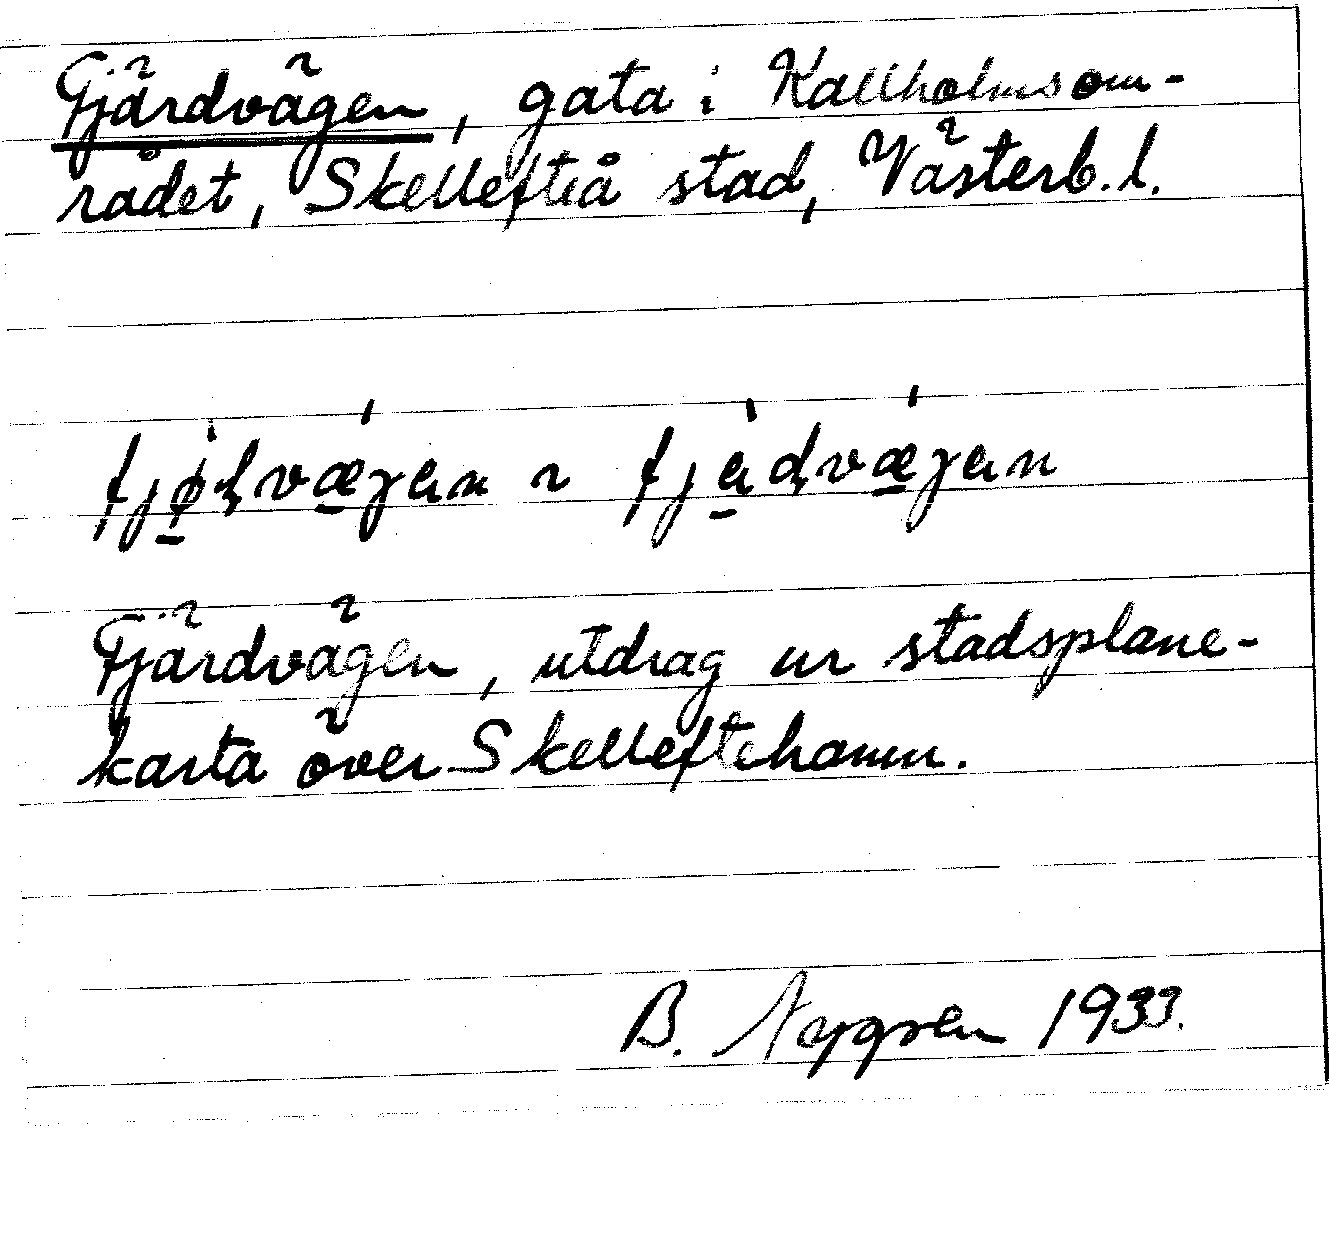 Fjärdvägen, gata i Kallholmsom-
rådet, Skellefteå stad, Västerb. l.
fjø̱ɖvæ̱gɐn ~ fja̱ɖvæ̱gɐn
Fjärdvägen, utdrag ur stadsplane-
karta över Skelleftehamn.
B. Nygren 1933.